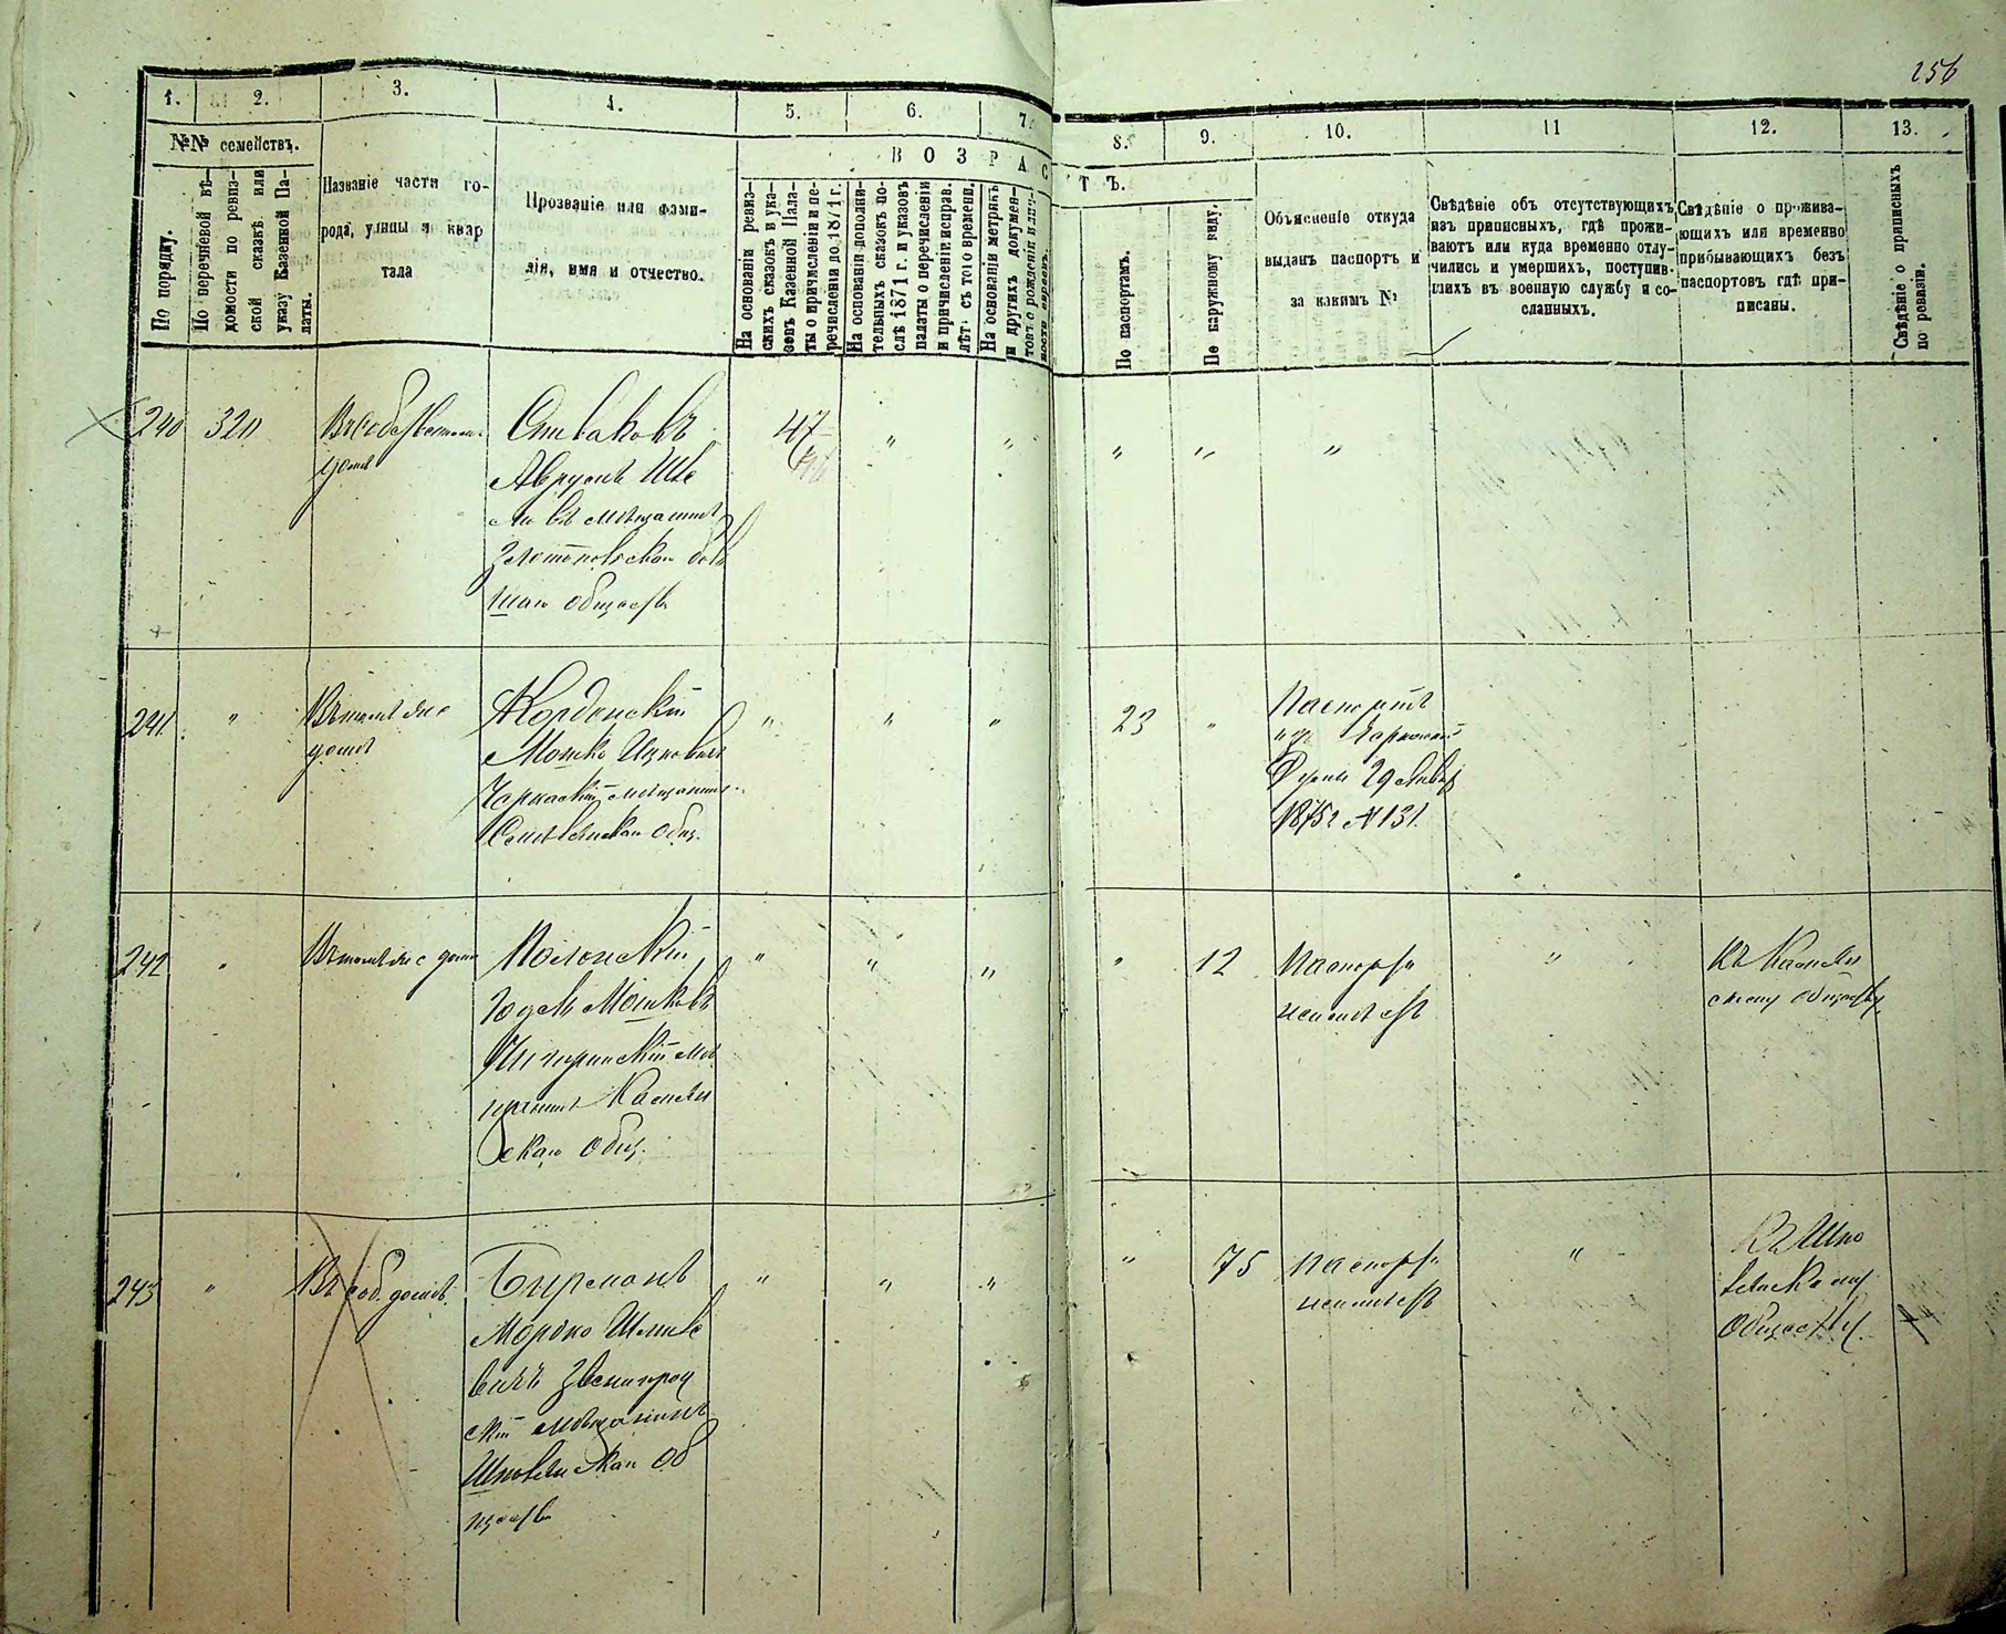 256
1. 2. 3. 4. 5. 6. 7.
8. 9. 10. 11 12. 13.
№№ семействъ.
По порядку.
По перечневой вѣ-
домости по ревиз-
ской сказкѣ или
указу Казенной Па-
латы.
Названіе части го-
рода, улицы и квар
тала
Прозваніе или фами-
лія, имя и отчество.
ВОЗРАС
ТЪ.
На основаніи ревиз-
скихъ сказокъ и ука-
зовъ Казенной Пала-
ты о причисленіи и пе-
речисленіи до 1871 г.
На основаніи дополни-
тельныхъ сказокъ по-
слѣ 1871 г. и указовъ
палаты о перечисленіи
и причисленіи исправ.
лѣтъ съ того времени.
На основаніи метрикъ
и другихъ докумен-
товъ о рожденіи
ности евреевъ.
По паспортамъ.
По наружному виду.
Объясненіе откуда
выданъ паспортъ и
за какимъ №
Свѣдѣніе объ отсутствующихъ
изъ приписныхъ, гдѣ прожи-
ваютъ или куда временно отлу-
чились и умершихъ, поступив-
шихъ въ военную службу и со-
сланныхъ.
Свѣдѣніе о прожива-
ющихъ или временно
прибывающихъ безъ
паспортовъ гдѣ при-
писаны.
Свѣдѣніе о приписныхъ
по ревизіи.
240 320 47 " " " " "
домѣ
Спиваковъ
Аврумъ
въ мѣщанинъ
Златопольскаго боль
шаго общества
241 " Въ томъ же " " " 23 "
домѣ
Кордонскій
Мошко Ицковичъ
Черкаскій мѣщанинъ
общ.
Паспортъ
изъ
Думы 29 Января
1875 г. № 131.
242 " Въ томъ же домѣ " " " " 12 "
Полонскій
Юдель Мошковъ
Чигиринскій мѣ
щанинъ Камен
скаго общ.
Паспорта
неимѣетъ
Къ Камен
скому обществу
243 " Въ соб. домѣ. " " " " 75 "
Бирманъ
Мордко
вичъ Звенигород
скій мѣщанинъ
Шполянскаго об
щества
Паспорта
неимѣетъ
Къ Шпо
лянскому
обществу